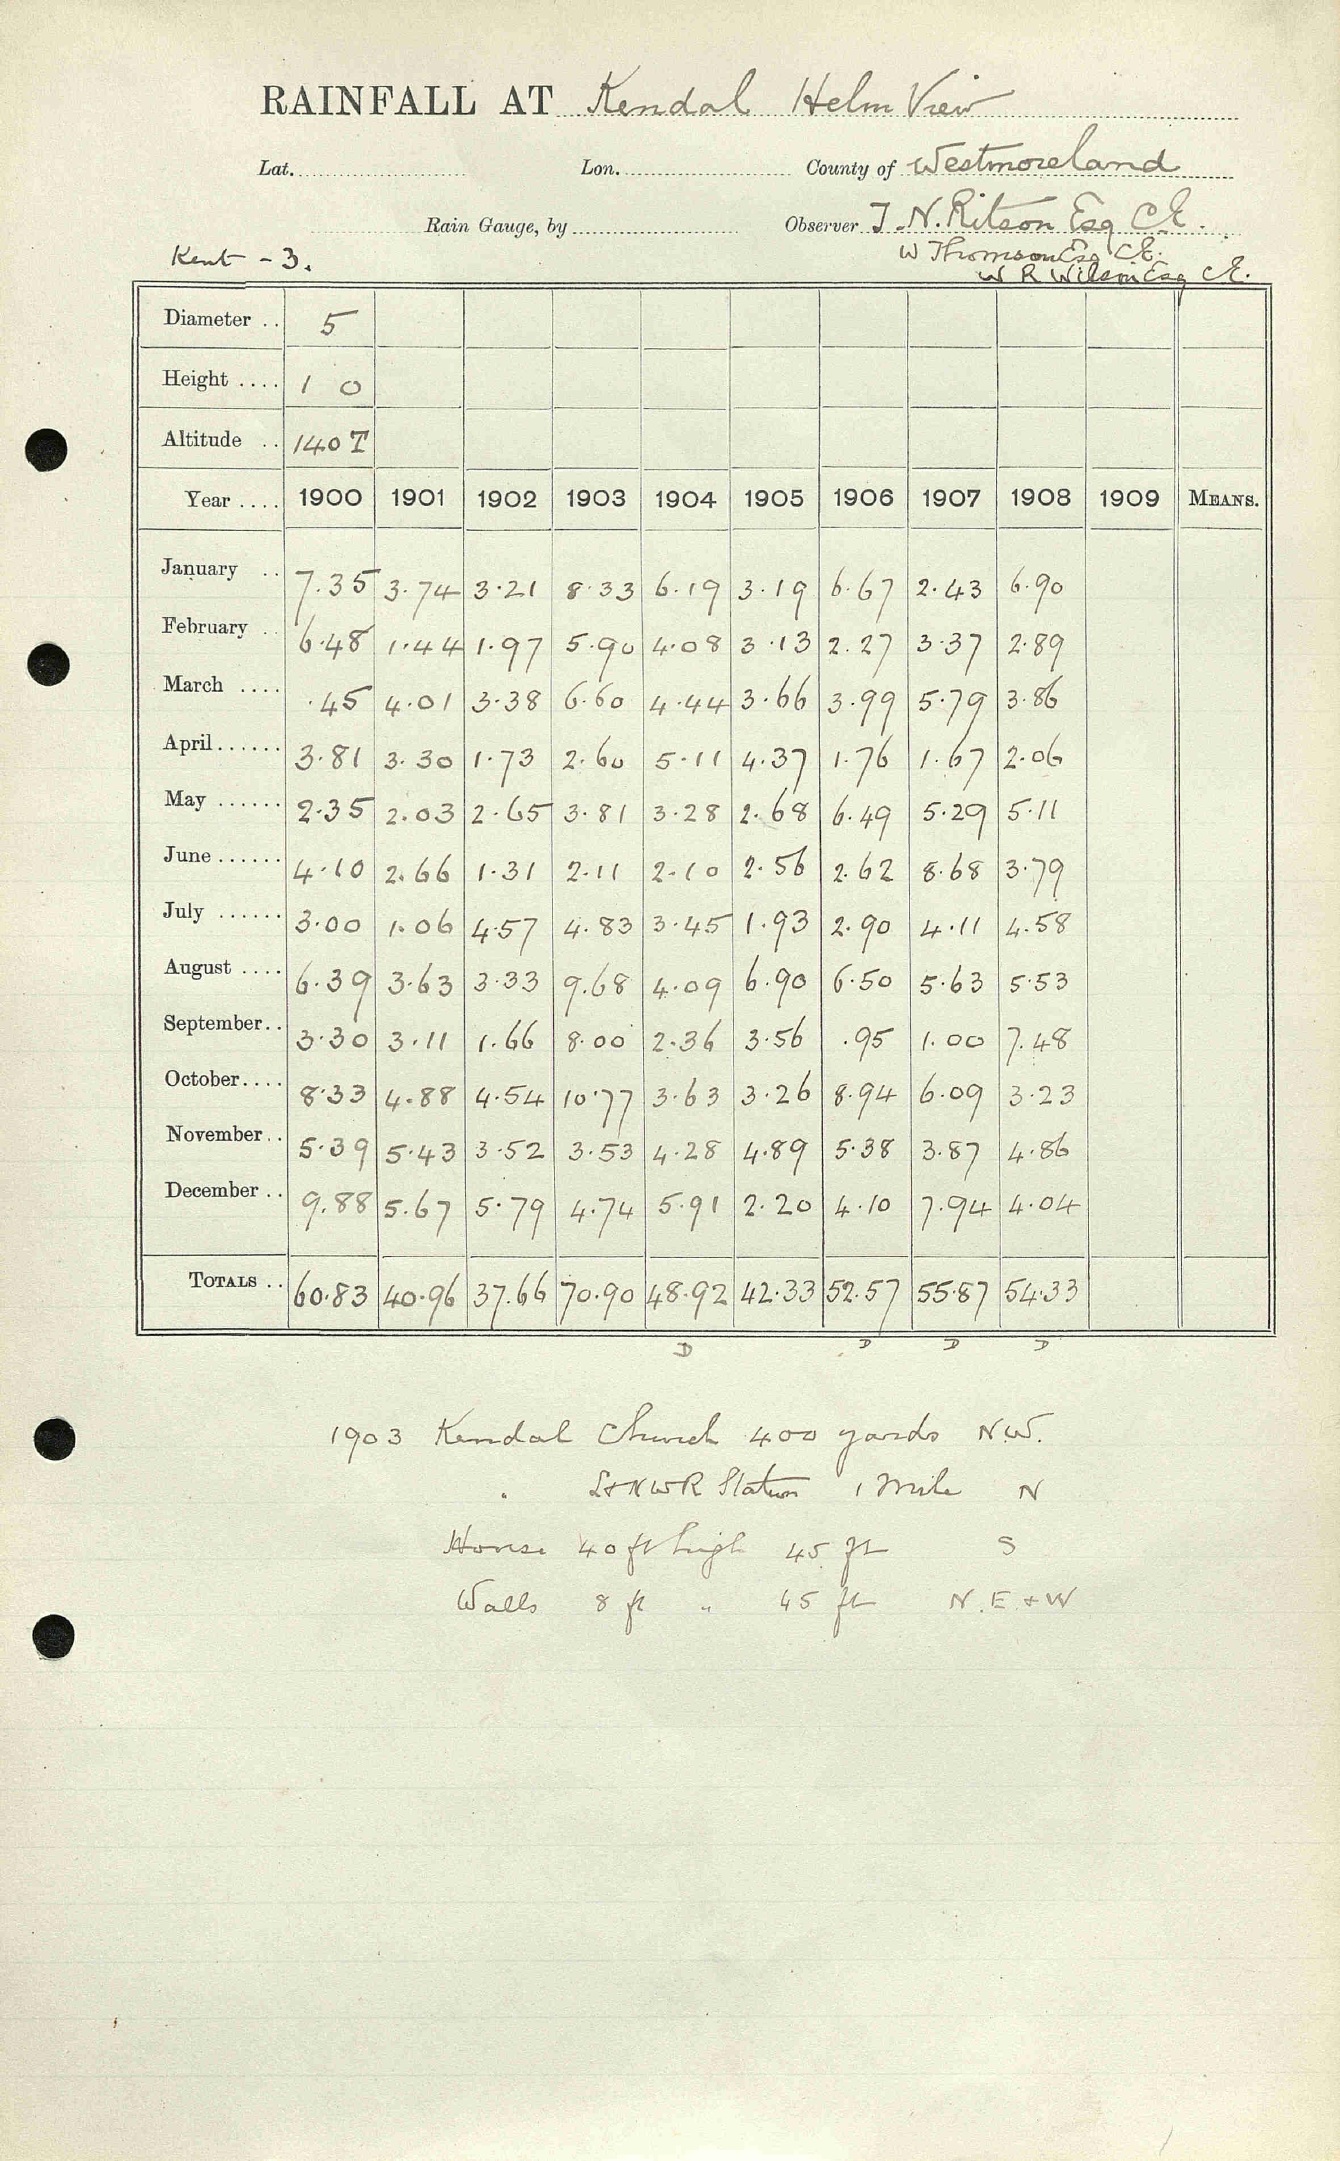 RAINFALL AT Kendal Helm View
Lat. Lon. County of Westmoreland
Rain Gauge, by Observer T. N. Ritson Esq C.E.
Kent - 3. W Thomson Esq C.E.
W R Wilson Esq C.E.
Diameter .. 5
Height .... 1 0
Altitude .. 140 T
Year .... 1900 1901 1902 1903 1904 1905 1906 1907 1908 1909 MEANS.
January .. 7.35 3.74 3.21 8.33 6.19 3.19 6.67 2.43 6.90
February .. 6.48 1.44 1.97 5.90 4.08 3.13 2.27 3.37 2.89
March .... .45 4.01 3.38 6.60 4.44 3.66 3.99 5.79 3.86
April...... 3.81 3.30 1.73 2.60 5.11 4.37 1.76 1.67 2.06
May ...... 2.35 2.03 2.65 3.81 3.28 2.68 6.49 5.29 5.11
June...... 4.10 2.66 1.31 2.11 2.10 2.56 2.62 8.68 3.79
July ...... 3.00 1.06 4.57 4.83 3.45 1.93 2.90 4.11 4.58
August .... 6.39 3.63 3.33 9.68 4.09 6.90 6.50 5.63 5.53
September.. 3.30 3.11 1.66 8.00 2.36 3.56 .95 1.00 7.48
October.... 8.33 4.88 4.54 10.77 3.63 3.26 8.94 6.09 3.23
November.. 5.39 5.43 3.52 3.53 4.28 4.89 5.38 3.87 4.86
December .. 9.88 5.67 5.79 4.74 5.91 2.20 4.10 7.94 4.04
TOTALS .. 60.83 40.96 37.66 70.90 48.92 42.33 52.57 55.87 54.33
D D D D
1903 Kendal Church 400 yards N.W.
" L+NWR Station 1 Mile N
House 40 ft high 45 ft S
Walls 8 ft " 45 ft N. E. + W